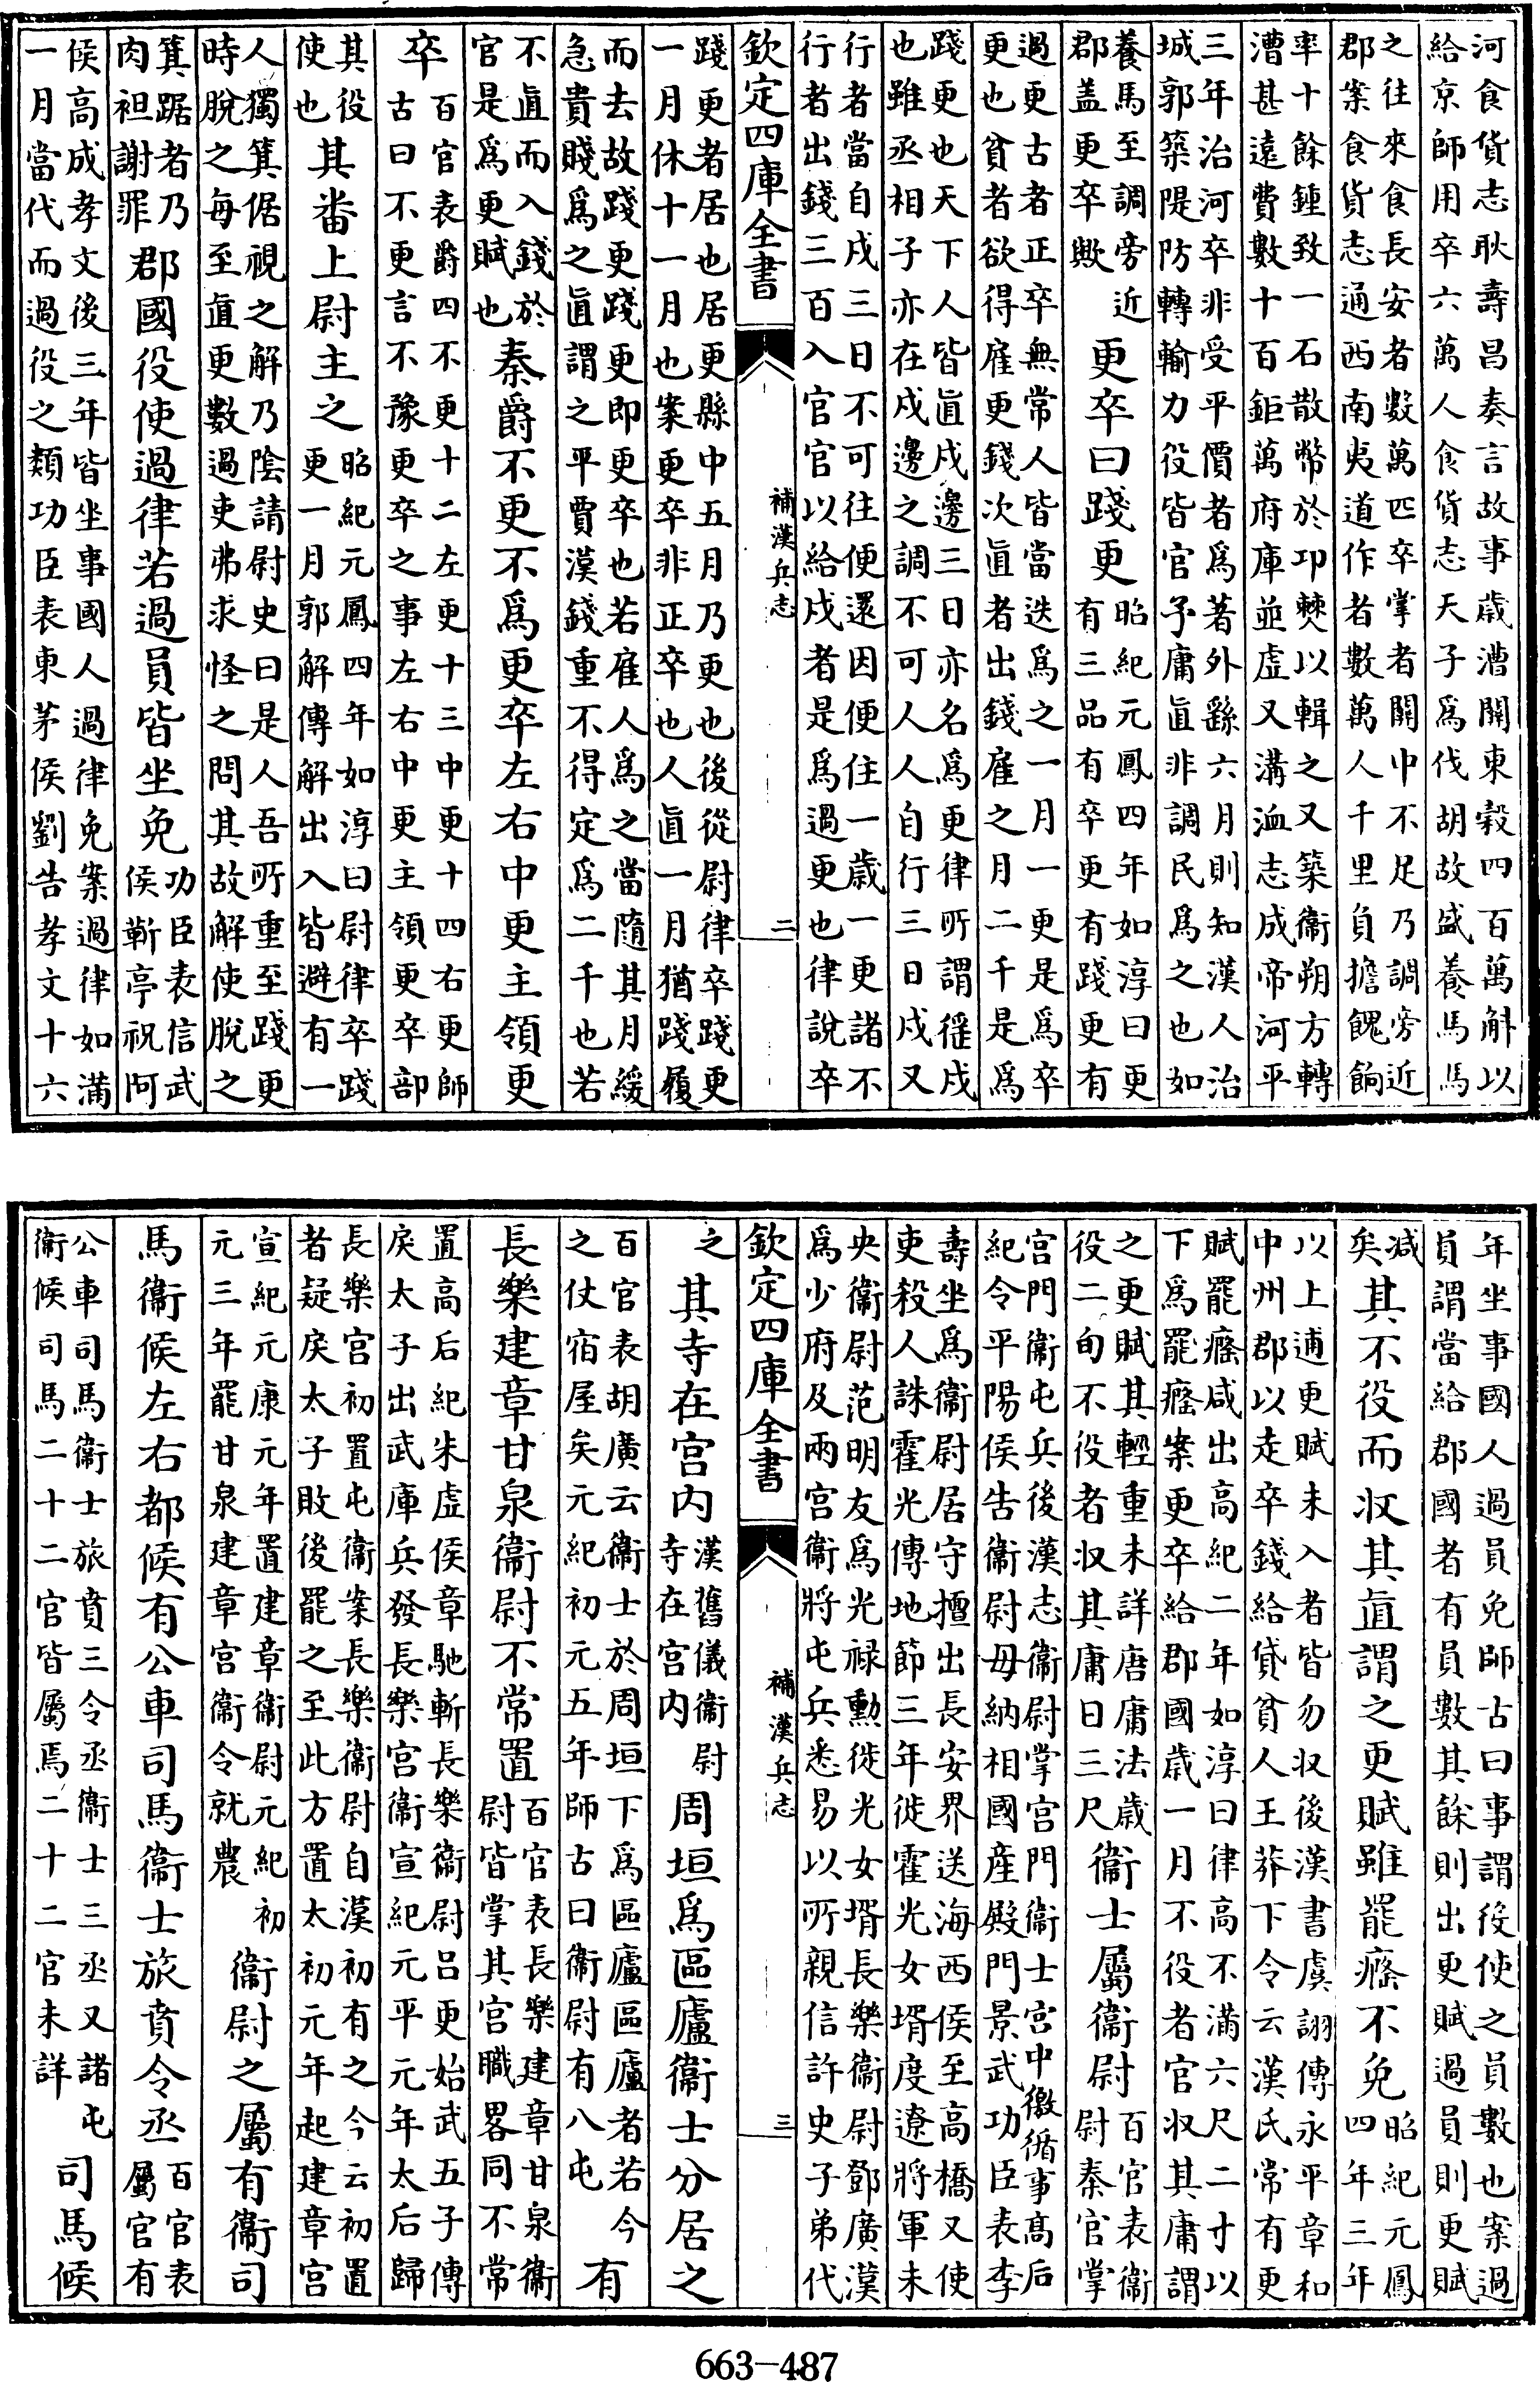 河食貨志耿壽昌奏言故事歲漕關東榖四百萬斛以
給京師用卒六萬人食貨志天子為伐胡故盛養馬馬
之往來食長安者數萬匹卒掌者關中不足乃調旁近
郡案食貨志通西南夷道作者數萬人千里負擔餽餉
率十餘鍾致一石散幣於卭僰以輯之又築衞朔方轉
漕甚逺費數十百鉅萬府庫並虛又溝洫志成帝河平
三年治河卒非受平價者為著外繇六月則知漢人治
城郭築隄防轉輸力役皆官予庸直非調民為之也如
養馬至調旁近
郡盖更卒歟
更卒曰踐更
昭紀元鳳四年如淳曰更
有三品有卒更有踐更有
過更古者正卒無常人皆當迭為之一月一更是為卒
更也貧者欲得雇更錢次直者出錢雇之月二千是為
踐更也天下人皆直戍邊三日亦名為更律所謂徭戍
也雖丞相子亦在戍邊之調不可人人自行三日戍又
行者當自戍三日不可往便還因便住一歲一更諸不
行者出錢三百入官官以給戍者是為過更也律說卒
欽定四庫全書 補漢兵志 二
踐更者居也居更縣中五月乃更也後從尉律卒踐更
一月休十一月也案更卒非正卒也人直一月猶踐履
而去故踐更踐更即更卒也若雇人為之當隨其月緩
急貴賤為之直謂之平賈漢錢重不得定為二千也若
不直而入錢於
官是為更賦也
秦爵不更不為更卒左右中更主領更
卒
百官表爵四不更十二左更十三中更十四右更師
古曰不更言不豫更卒之事左右中更主領更卒部
其役
使也
其番上尉主之
昭紀元鳳四年如淳曰尉律卒踐
更一月郭解傳解出入皆避有一
人獨箕倨視之解乃陰請尉史曰是人吾所重至踐更
時脫之每至直更數過吏弗求怪之問其故解使脫之
箕踞者乃
肉袒謝罪
郡國役使過律若過員皆坐免
功臣表信武
侯靳亭祝阿
侯高成孝文後三年皆坐事國人過律免案過律如滿
一月當代而過役之類功臣表東茅侯劉告孝文十六
年坐事國人過員免師古曰事謂役使之員數也案過
員謂當給郡國者有員數其餘則出更賦過員則更賦
減
矣
其不役而収其直謂之更賦雖罷癃不免
昭紀元鳳
四年三年
以上逋更賦未入者皆勿収後漢書虞詡傳永平章和
中州郡以走卒錢給貸貧人王莽下令云漢氏常有更
賦罷癃咸出高紀二年如淳曰律高不滿六尺二寸以
下為罷癃案更卒給郡國歳一月不役者官収其庸謂
之更賦其輕重未詳唐庸法歳
役二旬不役者収其庸日三尺
衞士屬衞尉
百官表衞
尉秦官掌
宫門衞屯兵後漢志衞尉掌宫門衞士宫中徼循事髙后
紀令平陽侯告衞尉毋納相國産殿門景武功臣表李
壽坐為衞尉居守擅出長安界送海西侯至高橋又使
吏殺人誅霍光傳地節三年徙霍光女壻度遼將軍未
央衞尉范明友為光禄勲徙光女壻長樂衞尉鄧廣漢
為少府及兩宫衞將屯兵悉易以所親信許史子弟代
欽定四庫全書 補漢兵志 三
之
其寺在宫内
漢舊儀衞尉
寺在宫内
周垣為區廬衞士分居之
百官表胡廣云衞士於周垣下為區廬區廬者若今
之仗宿屋矣元紀初元五年師古曰衞尉有八屯
有
長樂建章甘泉衞尉不常置
百官表長樂建章甘泉衞
尉皆掌其宫職畧同不常
置高后紀朱虛侯章馳斬長樂衞尉吕更始武五子傳
戾太子出武庫兵發長樂宫衞宣紀元平元年太后歸
長樂宫初置屯衞案長樂衞尉自漢初有之今云初置
者疑戾太子敗後罷之至此方置太初元年起建章宫
宣紀元康元年置建章衞尉元紀初
元三年罷甘泉建章宫衞令就農
衞尉之屬有衞司
馬衞候左右都候有公車司馬衞士旅賁令丞
百官表
屬官有
公車司馬衞士旅賁三令丞衞士三丞又諸屯
衞候司馬二十二官皆屬焉二十二官未詳
司馬候
663-487